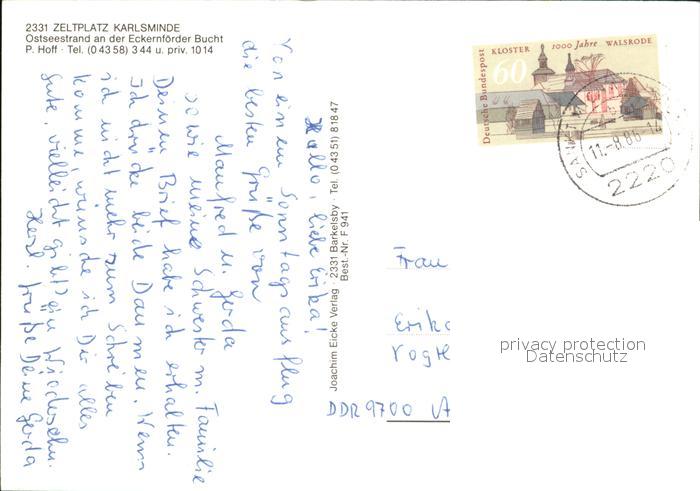 2331 ZELTPLATZ KARLSMINDE
Ostseestrand an der Eckernförder Bucht
P. Hoff · Tel. (0 43 58) 3 44 u. priv. 10 14
Hallo, liebe Erika!
Von einem Sonntagsausflug
die besten Grüße von
Manfred u. Gerda
sowie meine Schwester m. Familie
Deinen Brief habe ich erhalten.
Ich drücke beide Daumen. Wenn
ich nicht mehr zum Schreiben
komme, wünsche ich Dir alles
Gute, vielleicht gibt's ein Wiedersehn.
Herzl. Grüße Deine Gerda
Joachim Eicke Verlag · 2331 Barkelsby · Tel. (0 43 51) 8 18 47
Best.-Nr. F 941
Deutsche Bundespost
KLOSTER 1000 Jahre WALSRODE
60
SANKT
11.-8.86-1
2220
Frau
Erika
Vogtl
privacy protection
Datenschutz
DDR 9700